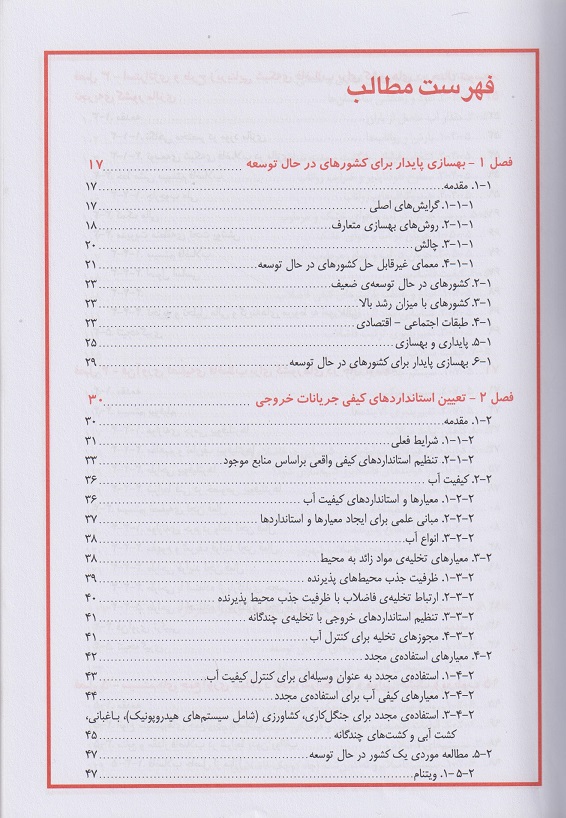 فهرست مطالب
فصل ۱ - بهسازی پایدار برای کشورهای در حال توسعه ........ ۱۷
۱-۱. مقدمه ........ ۱۷
۱-۱-۱. گرایش‌های اصلی ........ ۱۷
۲-۱-۱. روش‌های بهسازی متعارف ........ ۱۸
۳-۱-۱. چالش ........ ۲۰
۴-۱-۱. معمای غیرقابل حل کشورهای در حال توسعه ........ ۲۱
۲-۱. کشورهای در حال توسعه‌ی ضعیف ........ ۲۳
۳-۱. کشورهای با میزان رشد بالا ........ ۲۳
۴-۱. طبقات اجتماعی - اقتصادی ........ ۲۳
۵-۱. پایداری و بهسازی ........ ۲۵
۶-۱. بهسازی پایدار برای کشورهای در حال توسعه ........ ۲۹
فصل ۲ - تعیین استانداردهای کیفی جریانات خروجی ........ ۳۰
۱-۲. مقدمه ........ ۳۰
۱-۱-۲. شرایط فعلی ........ ۳۱
۲-۱-۲. تنظیم استانداردهای کیفی واقعی براساس منابع موجود ........ ۳۳
۲-۲. کیفیت آب ........ ۳۶
۱-۲-۲. معیارها و استانداردهای کیفیت آب ........ ۳۶
۲-۲-۲. مبانی علمی برای ایجاد معیارها و استانداردها ........ ۳۷
۳-۲-۲. انواع آب ........ ۳۸
۳-۲. معیارهای تخلیه‌ی مواد زائد به محیط ........ ۳۸
۱-۳-۲. ظرفیت جذب محیط‌های پذیرنده ........ ۳۹
۲-۳-۲. ارتباط تخلیه‌ی فاضلاب با ظرفیت جذب محیط پذیرنده ........ ۴۰
۳-۳-۲. تنظیم استانداردهای خروجی با تخلیه‌ی چندگانه ........ ۴۱
۴-۳-۲. مجوزهای تخلیه برای کنترل آب ........ ۴۱
۴-۲. معیارهای استفاده‌ی مجدد ........ ۴۲
۱-۴-۲. استفاده‌ی مجدد به عنوان وسیله‌ای برای کنترل کیفیت آب ........ ۴۳
۲-۴-۲. معیارهای کیفی آب برای استفاده‌ی مجدد ........ ۴۴
۳-۴-۲. استفاده‌ی مجدد برای جنگل‌کاری، کشاورزی (شامل سیستم‌های هیدروپونیک)، باغبانی،
کشت آبی و کشت‌های چندگانه ........ ۴۵
۵-۲. مطالعه موردی یک کشور در حال توسعه ........ ۴۷
۱-۵-۲. ویتنام ........ ۴۷